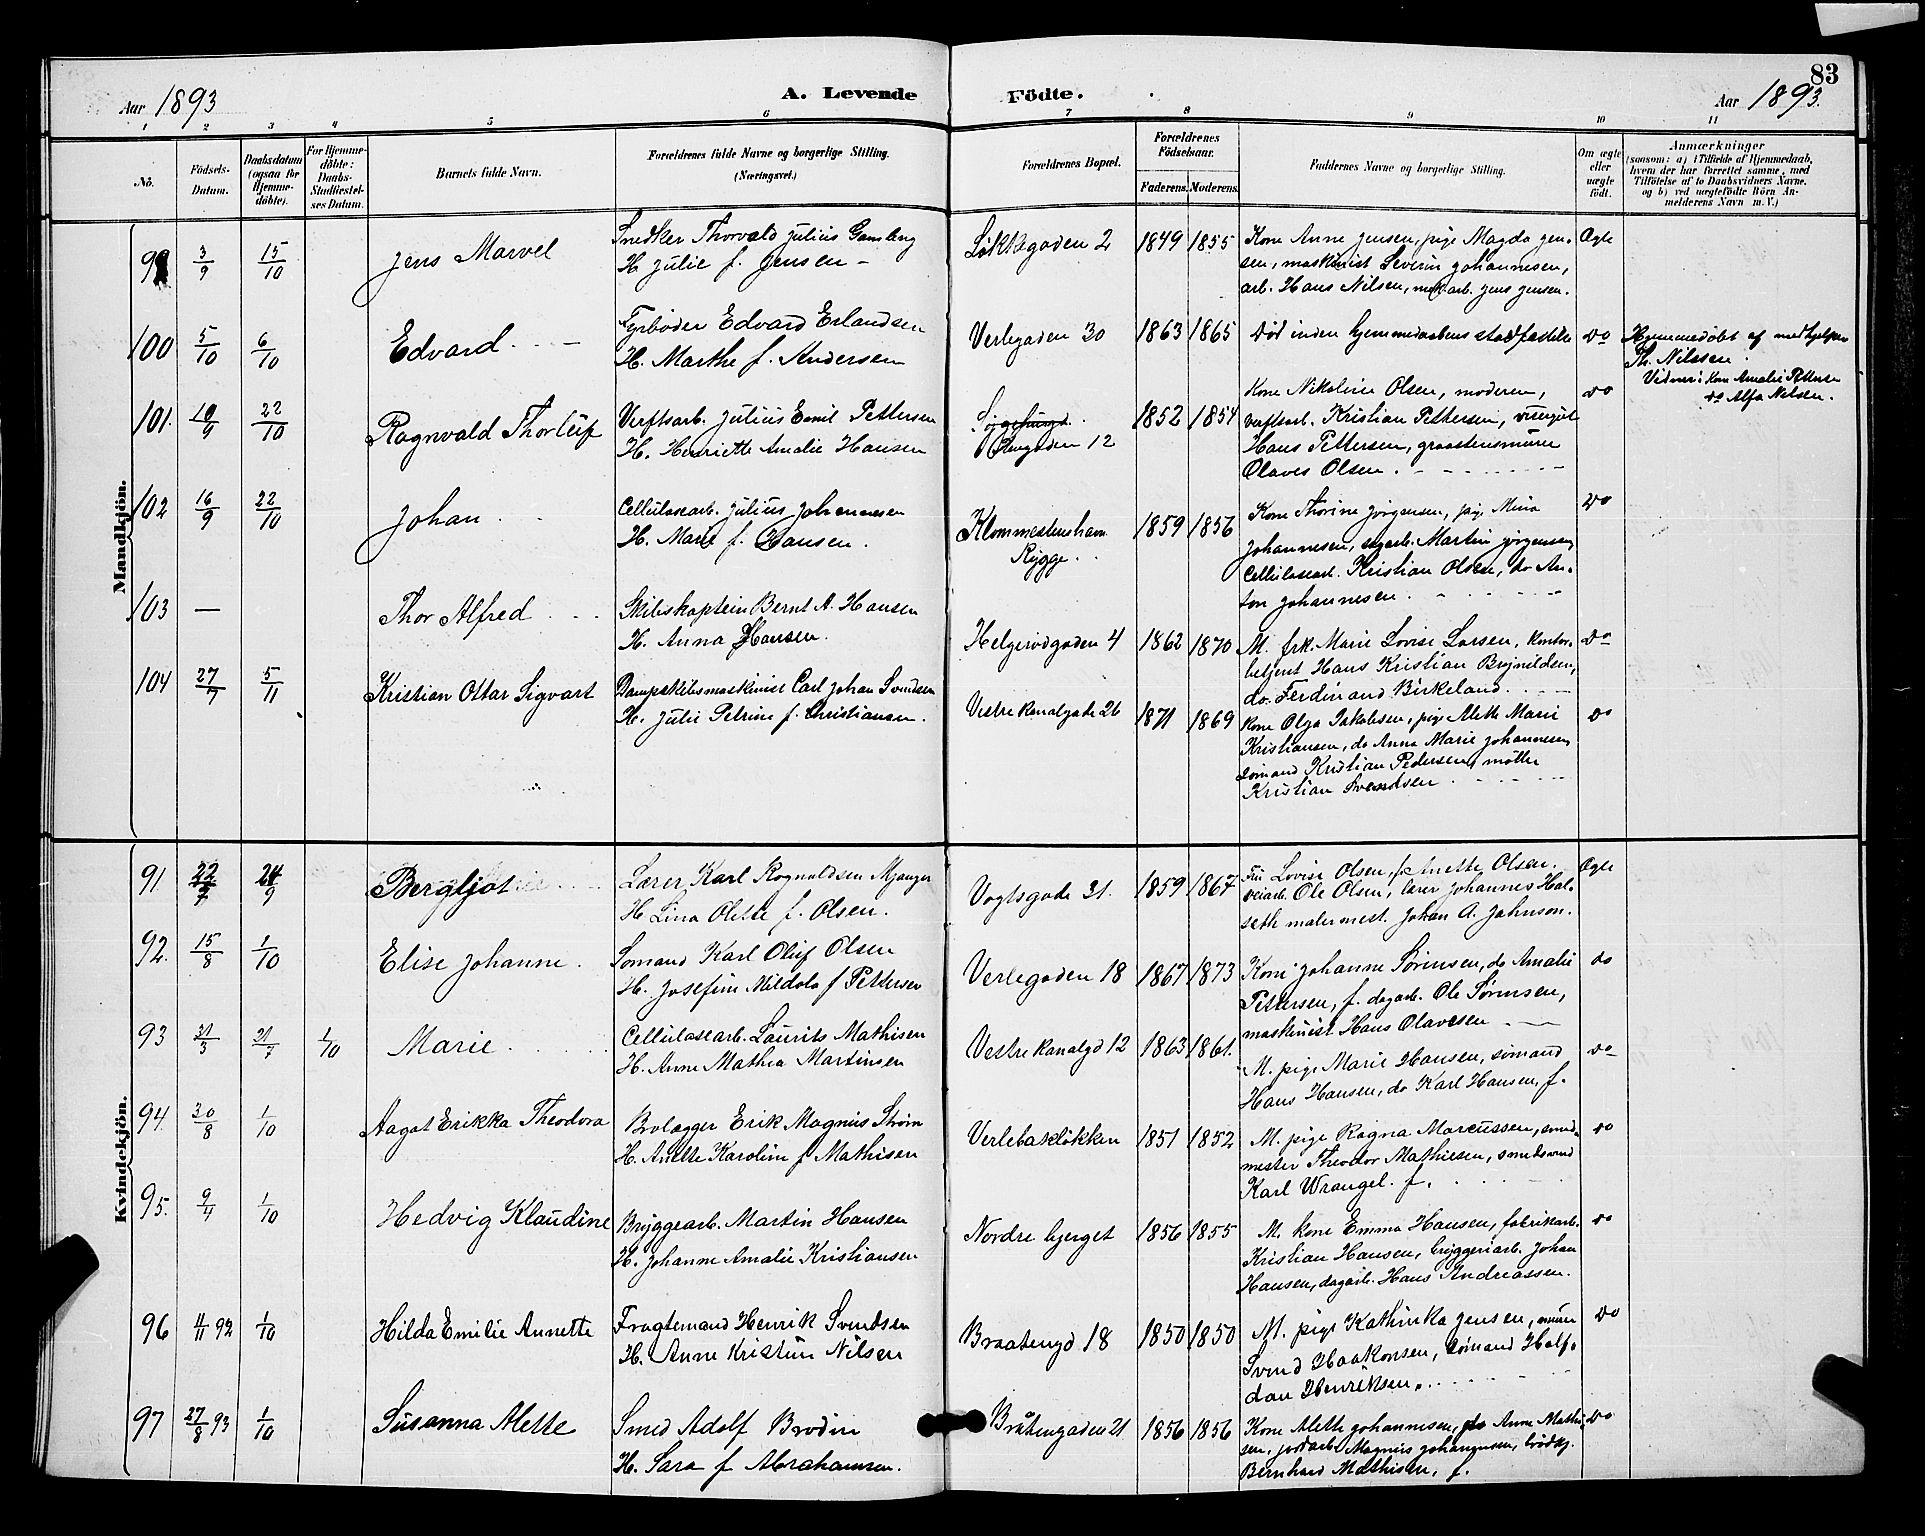 83
Aar 1893
A. Levende Födte.
Aar 1893.
1 2 3 4 5 6 7 8 9 10 11
No.
Födsels-Datum.
Daabsdatum (ogsaa for Hjemme-döbte).
For Hjemme-döbte: Daabs-Stadfæstel-ses Datum.
Barnets fulde Navn.
Forældrenes fulde Navne og borgerlige Stilling. (Næringsvei.)
Forældrenes Bopæl.
Forældrenes Födselsaar.
Faderens. Moderens.
Faddernes Navne og borgerlige Stilling.
Om ægte eller uægte födt.
Anmærkninger
(saasom: a) i Tilfælde af Hjemmedaab, hvem der har forrettet samme, med Tilföielse af to Daabsvidners Navne, og b) ved uægtefödte Börn An-melderens Navn m.V.)
Mandkjön.
99 3/9 15/10 Jens Marvel
Snedker Thorvald Julius Gamleng
H. Julie f. Jensen
Løkkegaden 2 1849 1855
Kone Anne Jensen, pige Magda Jen-
sen, maskinist Severin Johannesen,
arb. Hans Nilsen, mek.arb. Jens Jensen.
Ægte
100 5/10 6/10 Edvard
Fyrbøder Edvard Erlandsen
H. Marthe f. Andersen
Verlegaden 30 1863 1865
Død inden hjemmedaabens stadfæstelse
do
Hjemmedøbt af medhjelper
Th. Nilssen.
Vidner: Kone Amalie Pettersen
do Alfa Nilsen.
101. 10/9 22/10 Ragnvald Thorleif
Verftsarb. Julius Emil Pettersen
H. Henriette Amalie Hansen
gaden 12 1852 1854
Kone Nikoline Olsen, moderen,
verftsarb. Kristian Pettersen, visergut
Hans Pettersen, graastensmürer
Olaves Olsen.
do
102 16/9 22/10 Johan
Cellulosearb. Julius Johannesen
H. Marie f. Hansen.
Klommestenshavn
Rygge. 1859 1856
Kone Thorine Jørgensen, pige Mina
Johannesen, sagarb. Martin Jørgensen,
Cellulosearb. Kristian Olsen, do An-
ton Johannesen.
do
103 — Thor Alfred
Skibskaptein Bernt A. Hansen
H. Anna Hansen.
Helgerødgaden 4 1862 1870
M. frk. Marie Lovise Larsen, kontor-
betjent Hans Kristian Brynildsen,
do. Ferdinand Birkeland.
do
104 27/7 5/11 Kristian Ottar Sigvart
Dampskibsmaskinist Carl Johan Svendsen
H. Julie Petrine f. Christiansen.
Vestre Kanalgade 26 1871 1869
Kone Olga Jakobsen, pige Alette Marie
Kristiansen, do Anna Marie Johannesen,
sømand Kristian Pedersen, møller
Kristian Svendsen
do
Kvindekjön.
91 22/7 24/9 Bergljot
Lærer Karl Rognaldsen Mjanger
H. Lina Olette f. Olsen.
Vogtsgade 31. 1859 1867
Fru Lovise Olsen, f. Anette Olsen.
veiarb. Ole Olsen, lærer Johannes Hal-
seth malermest. Johan A. Johnson.
Ægte
92. 15/8 1/10 Elise Johanne.
Sømand Karl Oluf Olsen
H. Josefine Mildola f Pettersen
Verlegaden 18 1867 1873
Kone Johanne Sørensen, do Amalie
Pettersen, f. dagarb. Ole Sørensen,
maskinist Hans Olavesen
do
93 31/3 31/7 1/10 Marie
Cellulosearb. Laurits Mathisen
H. Anne Mathea Martinsen
Vestre Kanalgd 12 1863 1861.
M. pige Marie Hansen, sømand
Hans Hansen, do Karl Hansen, f.
do
94. 30/8 1/10 Aagot Erikka Theodora
Brolægger Erik Magnus Strøm
H. Anette Karoline f Mathisen
Verlebakløkken 1851 1852
M. pige Ragna Marcussen, smed-
mester Theodor Mathiesen, smedsvend
Karl Wrangel. f.
do
95. 9/4 1/10 Hedvig Klaudine
Bryggearb. Martin Hansen
H. Johanne Amalie Kristiansen
Nordre bjerget 1856 1855
M. kone Emma Hansen, fabrikarb.
Kristian Hansen, bryggeriarb. Johan
Hansen, dagarb. Hans Andreassen.
do
96 4/11 92 1/10 Hilda Emilie Annette
Fragtemand Henrik Svendsen
H. Anne Kristine Nilsen
Braatengd 18 1850 1850
M. pige Kathinka Jensen, mürer
Svend Haakonsen, sømand Half-
dan Henriksen.
do
97 27/8 93 1/10 Susanna Alette
Smed Adolf Brodin
H. Sara f Abrahamsen.
Bråtengaden 21 1856 1856
Kone Alette Johannesen, do Anne Mathi-
sen, jordarb. Magnus Johannesen, brødkj.
Bernhard Mathisen, f.
do